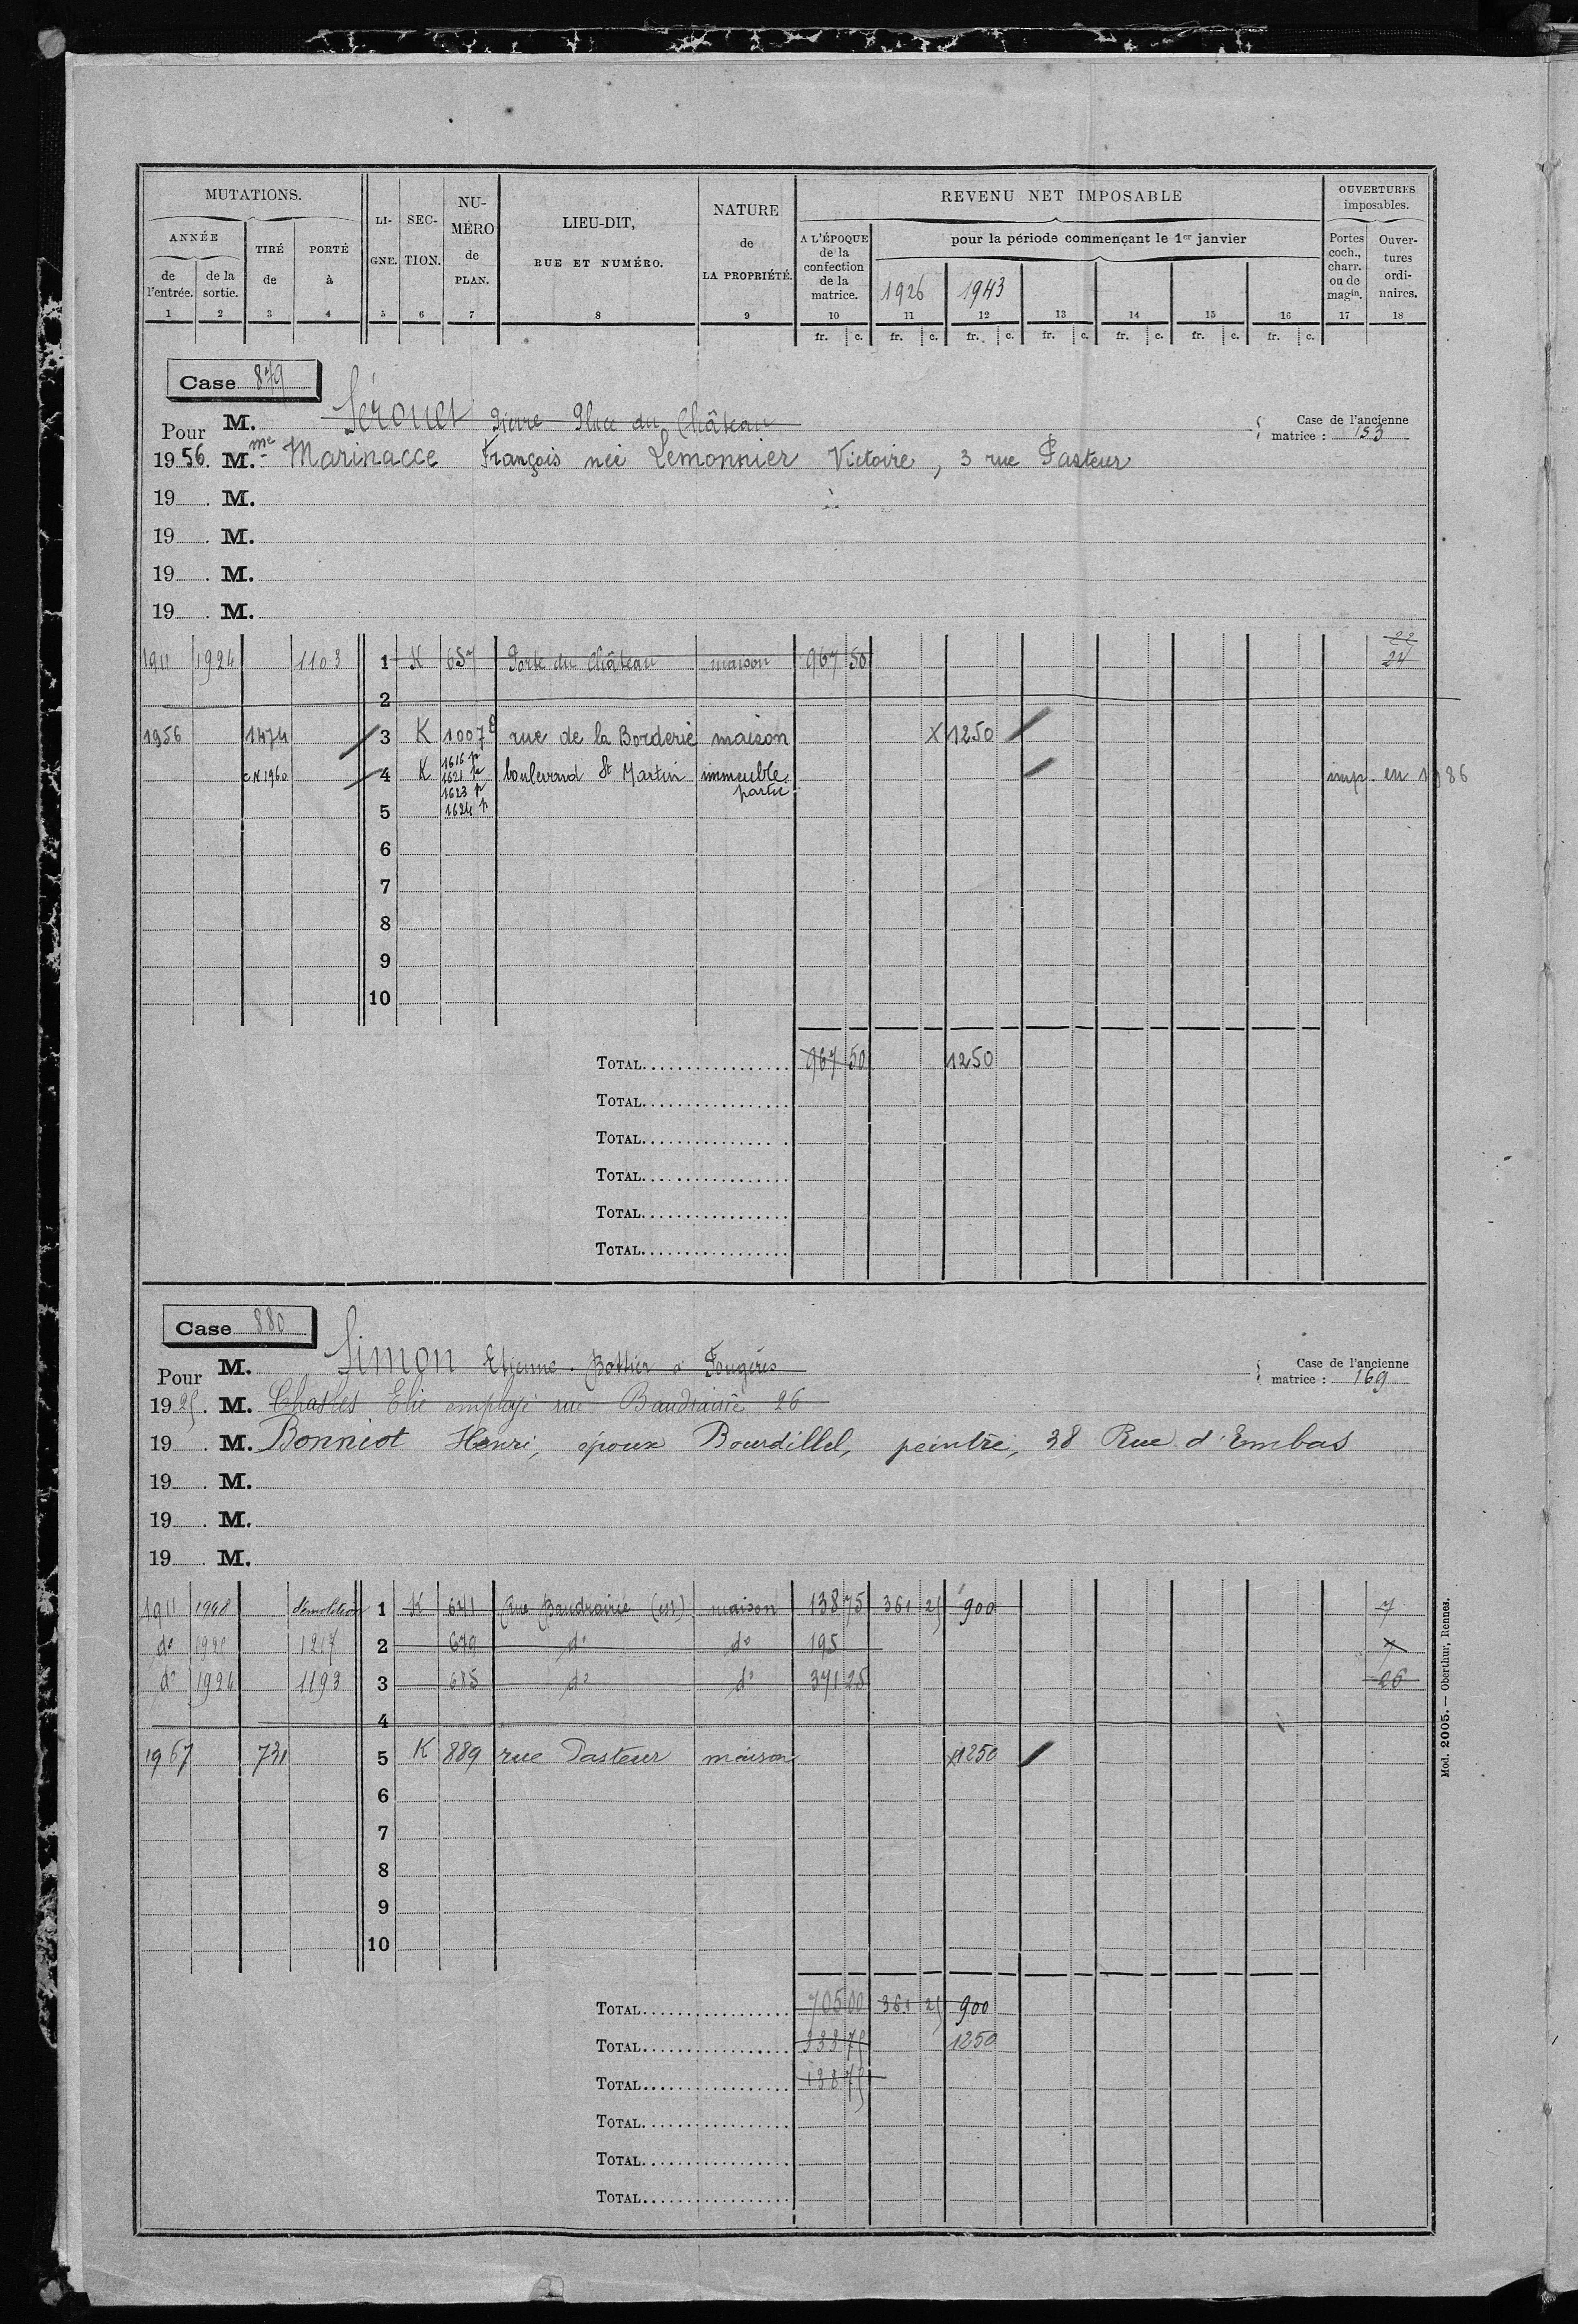 MUTATIONS. LI-GNE. SEC-TION. NU-MÉRO de PLAN. LIEU-DIT, RUE ET NUMÉRO. NATURE de LA PROPRIÉTÉ. REVENU NET IMPOSABLE OUVERTURES imposables.
ANNÉE TIRÉ de PORTÉ à A L'ÉPOQUE de la confection de la matrice. pour la période commençant le 1er janvier Portes coch., charr. ou de magin. Ouver-tures ordi-naires.
de l'entrée. de la sortie. 1926 1943
1 2 3 4 5 6 7 8 9 10 11 12 13 14 15 16 17 18
fr. c. fr. c. fr. c. fr. c. fr. c. fr. c. fr. c.
Case 879
Pour M. Sérouet Pierre Place du Château Case de l'ancienne matrice : 153
1956. M.me Marinacce François née Lemonnier Victoire, 3 rue Pasteur
19 . M.
19 . M.
19 . M.
19 . M.
1911 1924 1103 1 K 657 Porte du Château maison 967 50 22 24
2
1956 1474 3 K 1007 rue de la Borderie maison X 1250
CN 1960 4 K 1616 p 1621 p 1623 p boulevard St Martin immeuble partie imp. en 1986
5 1624 p
6
7
8
9
10
TOTAL 967 50 1250
TOTAL
TOTAL
TOTAL
TOTAL
TOTAL
Case 880
Pour M. Simon Etienne. Bottier à Fougères Case de l'ancienne matrice : 169
1925. M. Chasles Elie employé rue Baudrairie 26
19 . M. Bonniot Henri, époux Bourdillel, peintre, 38 Rue d'Embas
19 . M.
19 . M.
19 . M.
1911 1948 démolition 1 K 641 Rue Baudrairie (est) maison 138 75 361 25 900 7
do 1925 1217 2 679 do do 195 7
do 1924 1193 3 685 do do 371 25 26
4
1967 731 5 K 889 rue Pasteur maison x1250
6
7
8
9
10
TOTAL 705 00 361 25 900
TOTAL 333 75 1250
TOTAL 138 75
TOTAL
TOTAL
TOTAL
Mod. 2005. — Oberthur, Rennes.